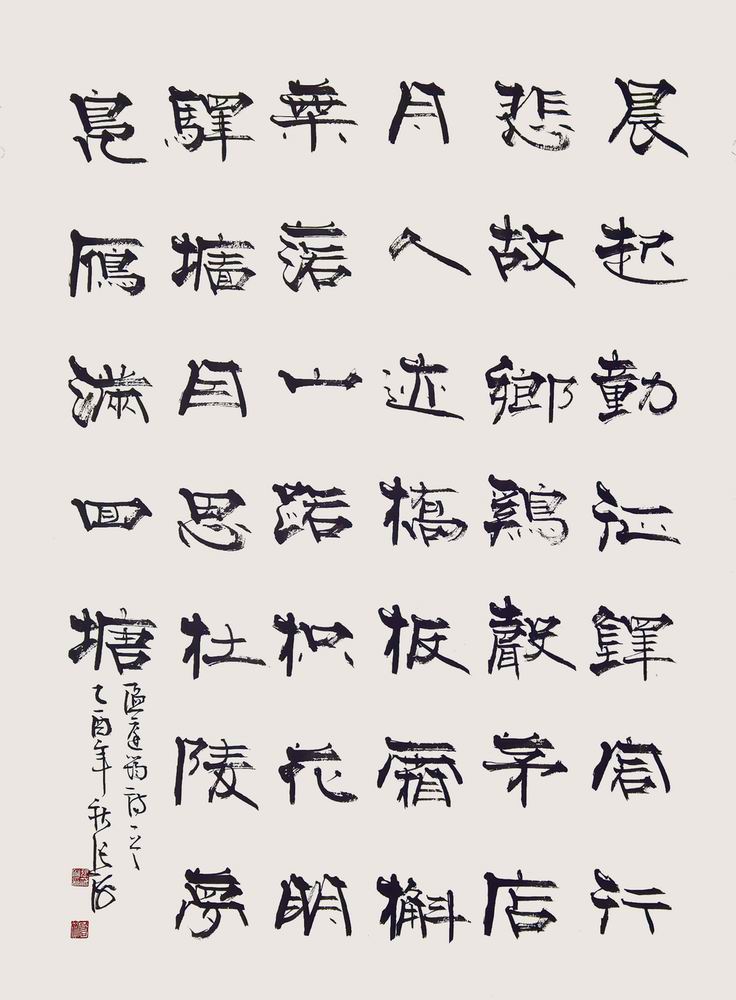 晨起動征鐸客行
悲故鄉鷄聲茅店
月人迹橋板霜槲
葉落山路枳花明
驛墻因思杜陵夢
鳧鴈滿回塘
温庭筠詩一首
乙酉年秋張海